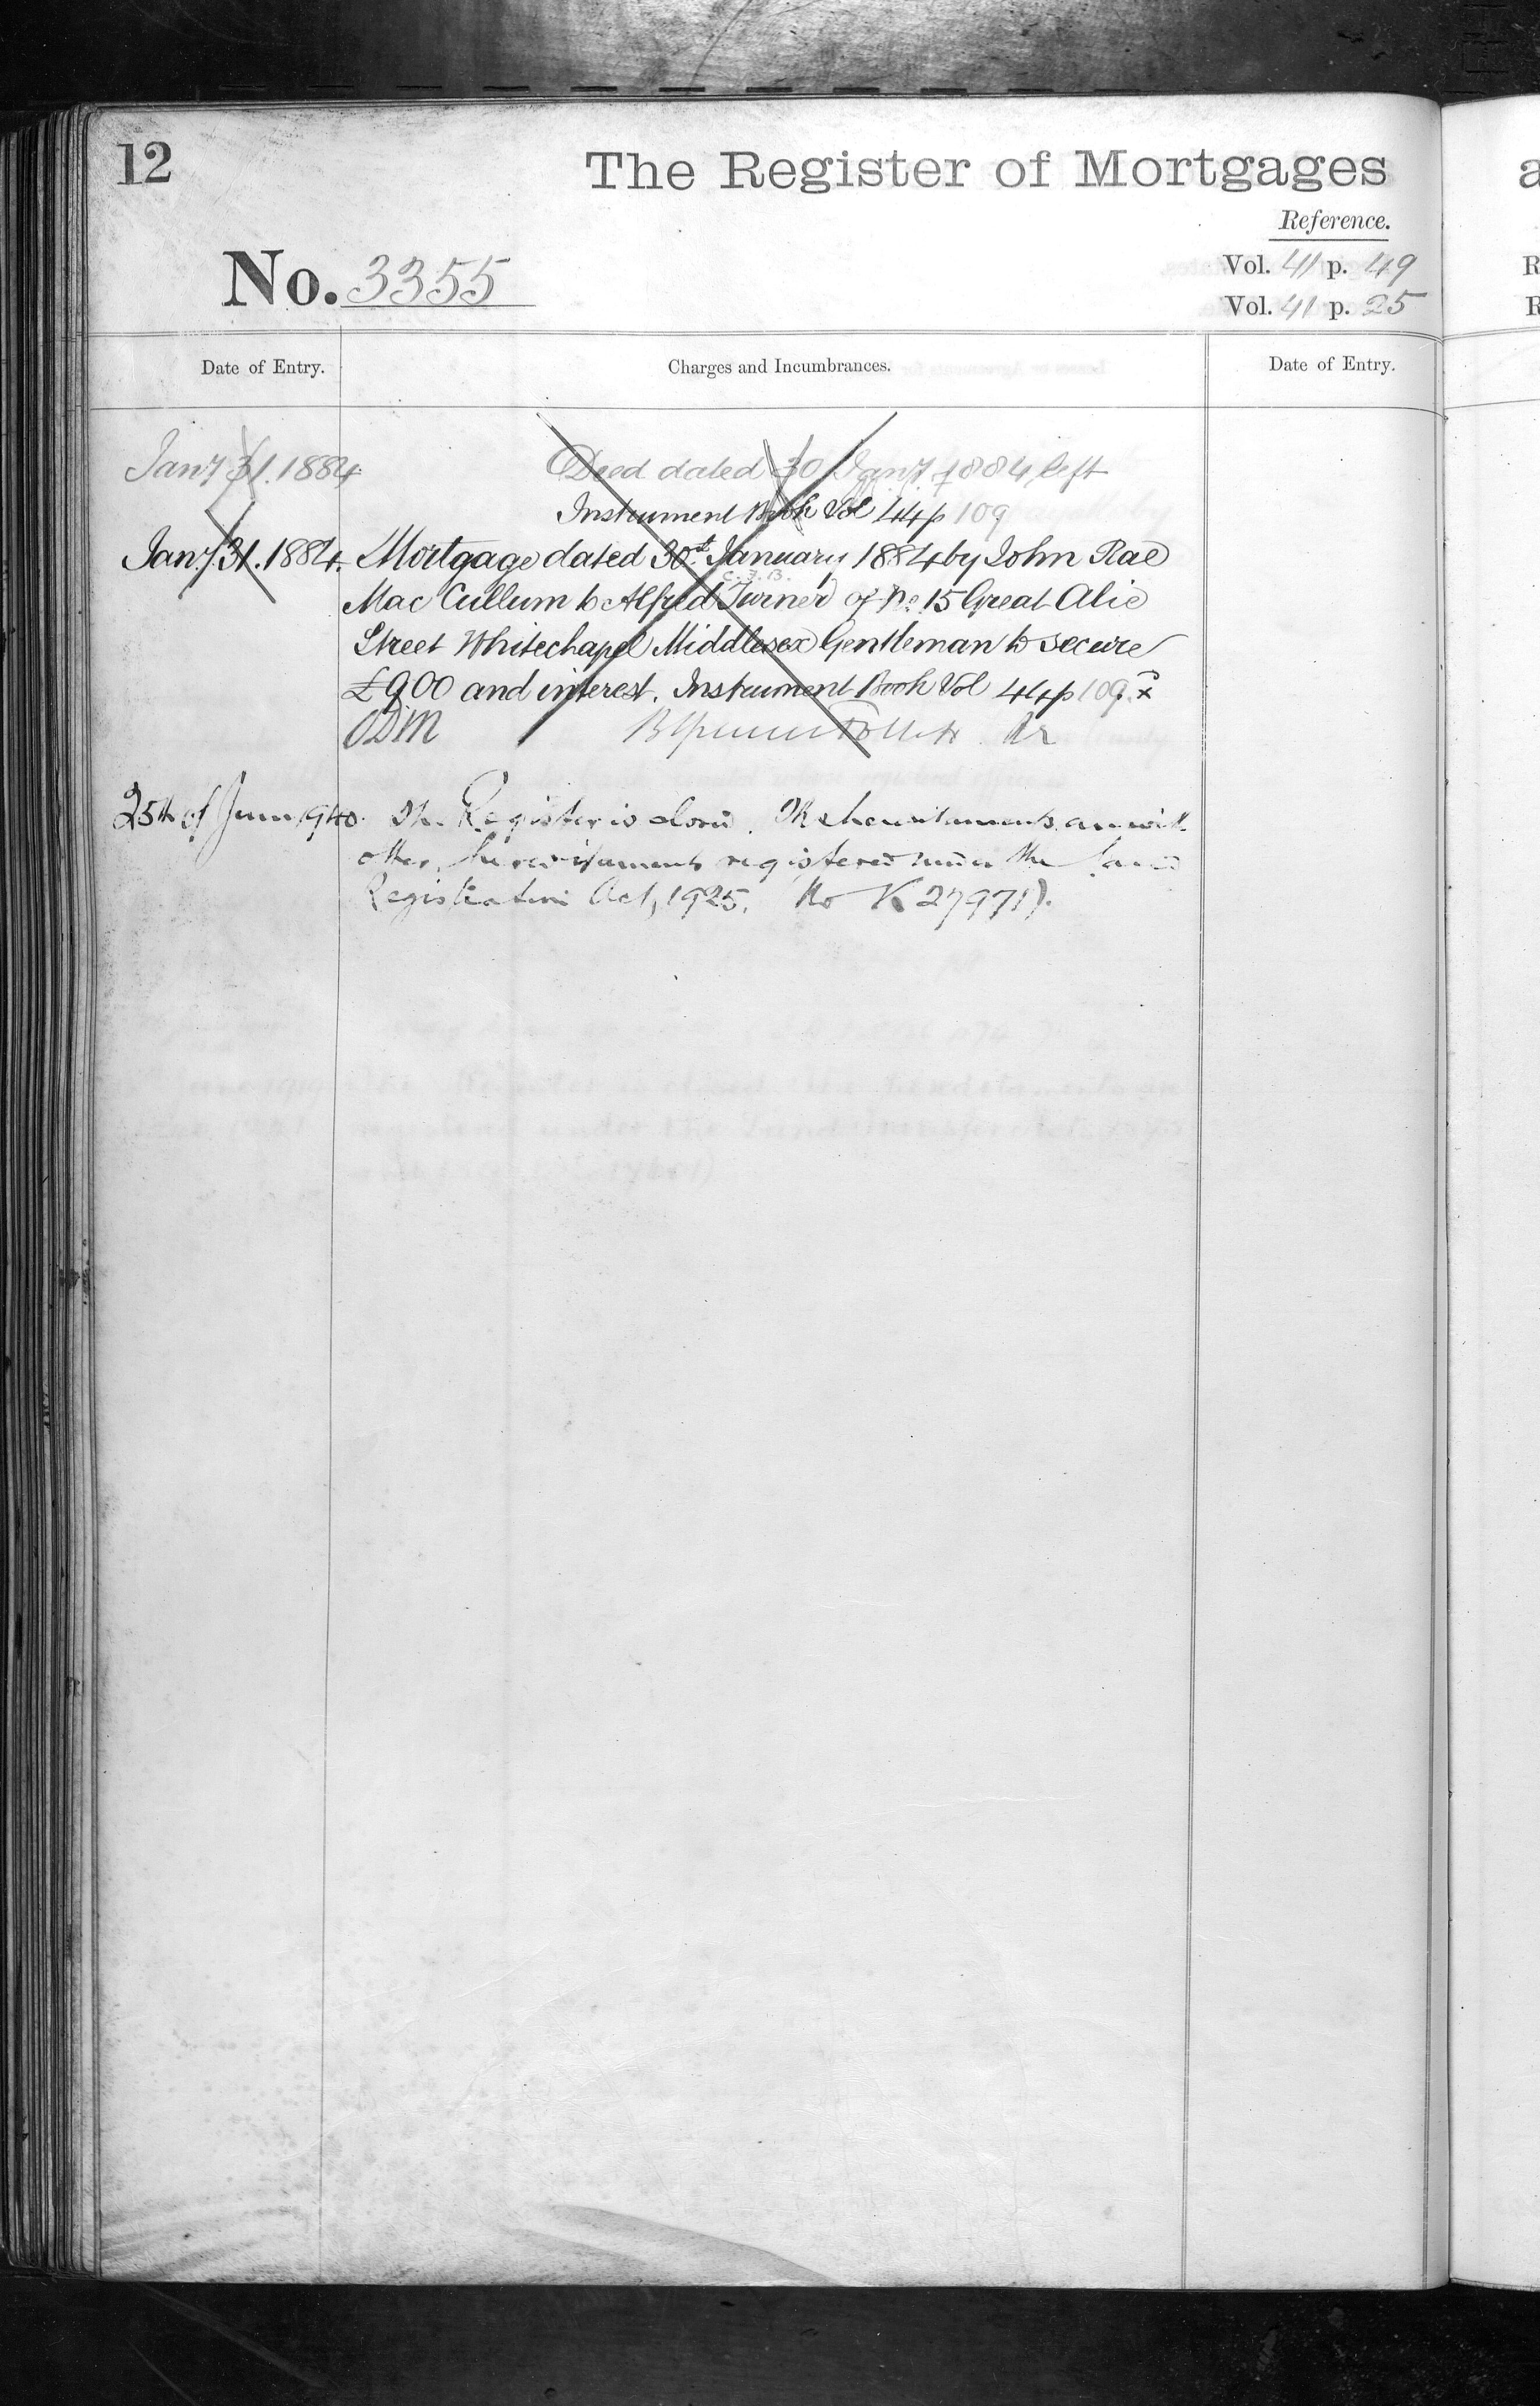 12
The Register of Mortgages
Reference.
No. 3355
Vol. 41 p. 49
Vol. 41 p. 25
Date of Entry.
Charges and Incumbrances.
Date of Entry.
Jany 31. 1884
Deed dated 30 Jany 1884 left
Instrument Book Vol 44 p 109
Jany 31. 1884. Mortgage dated 30th January 1884 by John Rae
C.F.B.
Mac Cullum to Alfred Turner of No 15 Great Alie
Street Whitechapel Middlesex Gentleman to secure
£900 and interest. Instrument Book Vol 44 p 109.
ODM
25th of June 1940. The Register is closed. The hereditaments are with
other hereditaments registered under the Land
Registration Act, 1925. No K 27971).
a
R
R